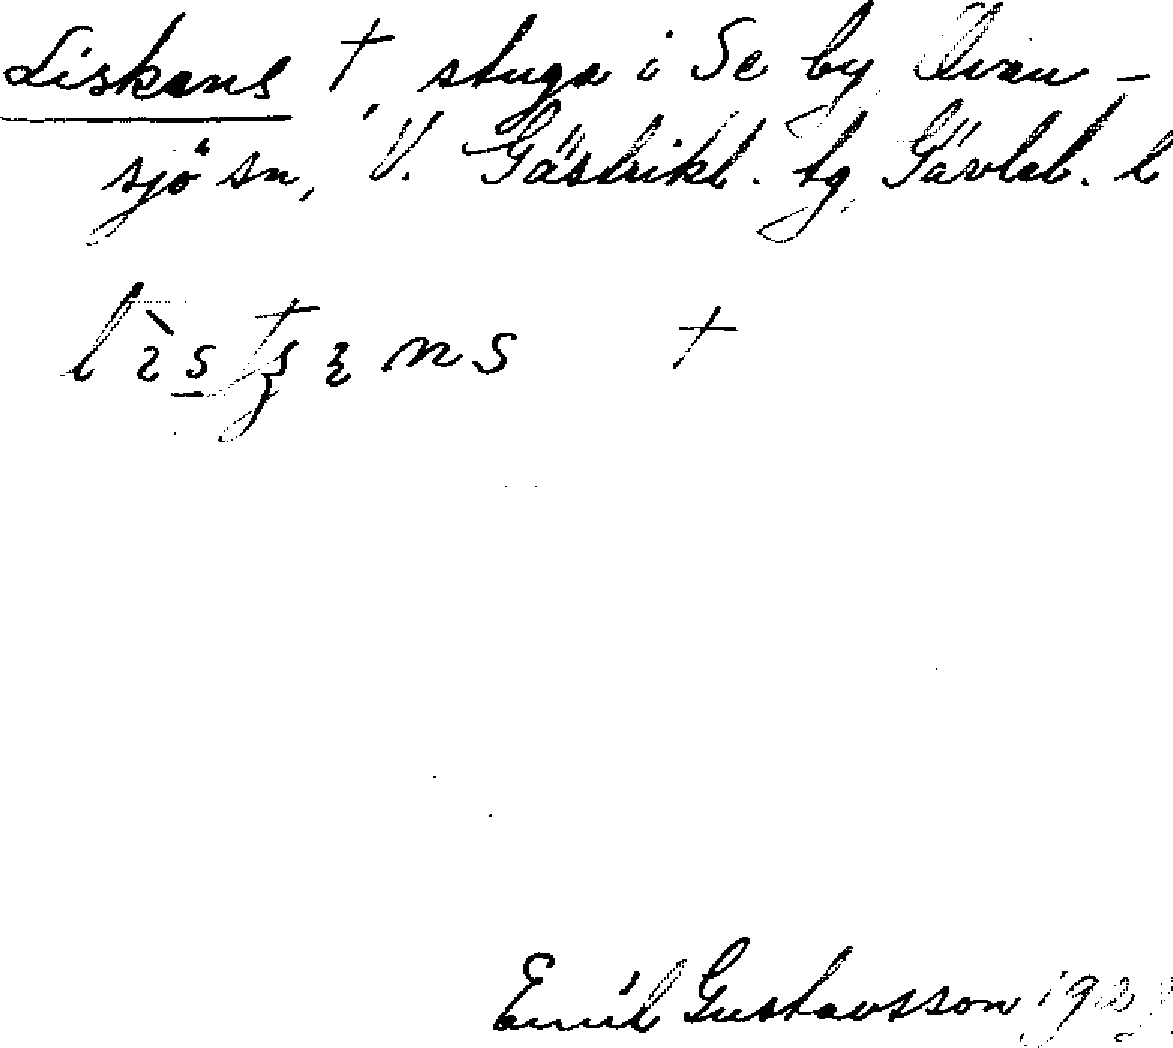 Liskans †, stuga i Se by Ovan-
sjö sn, V. Gästrikl. tg Gävleb. l
†
Emil Gustavsson